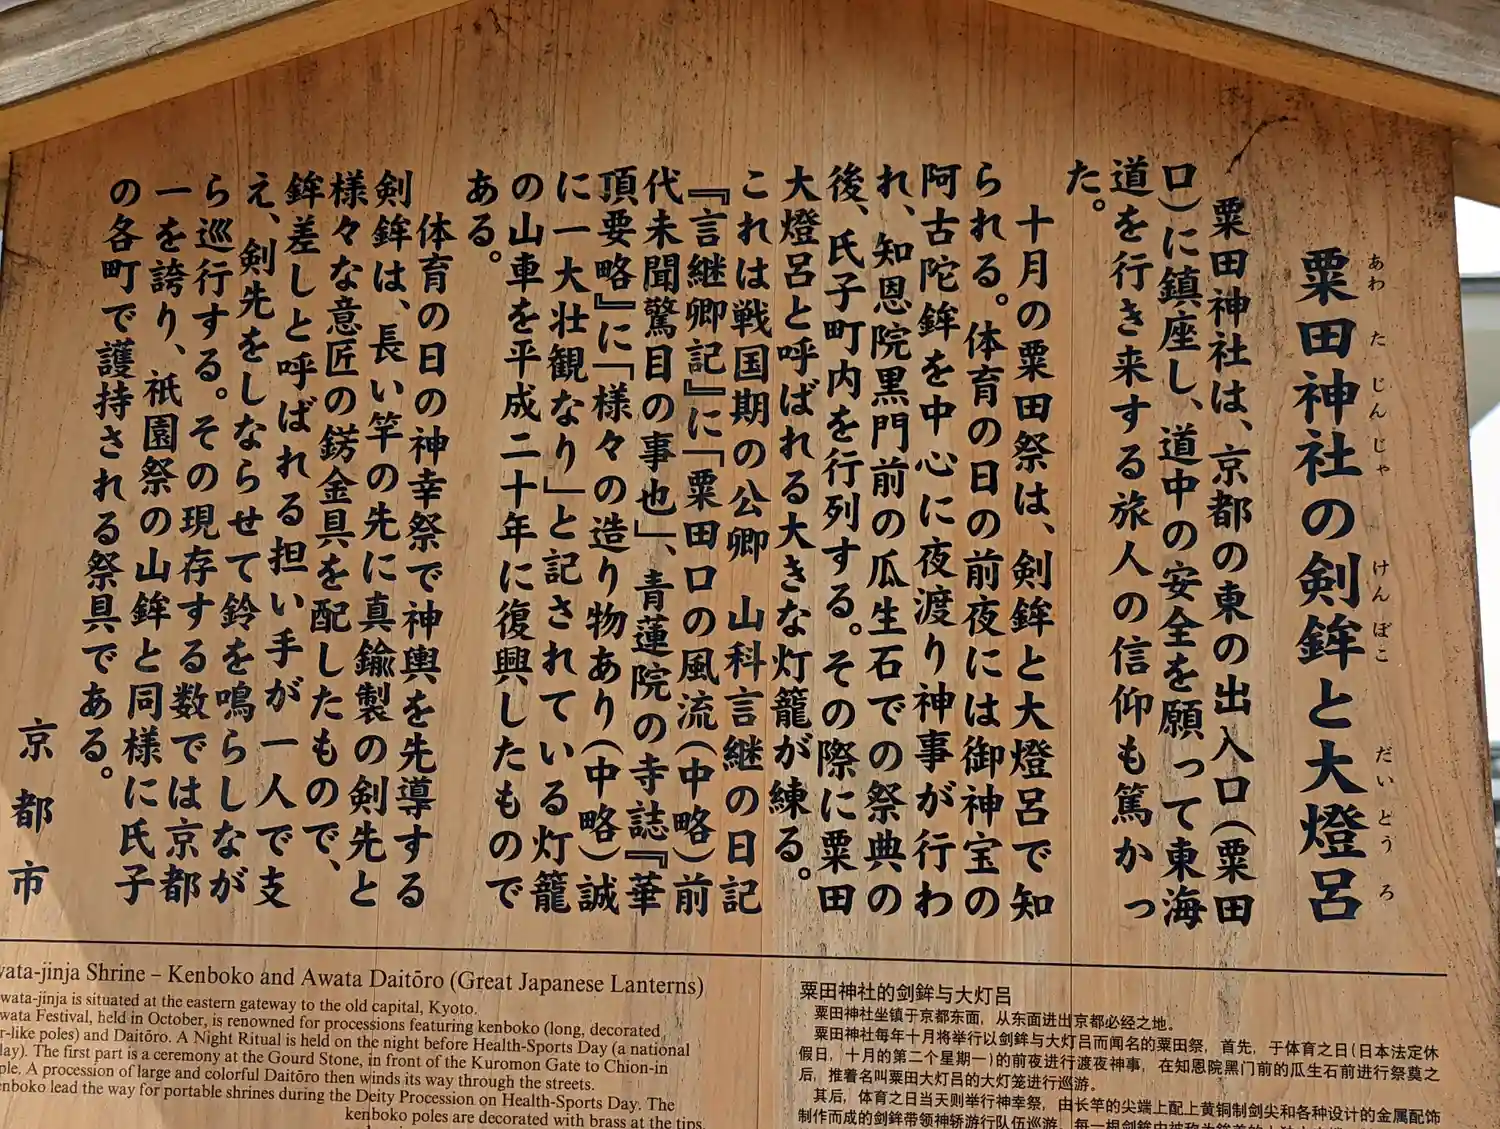 粟田神社の剣鉾と大燈呂
あわ た じん じゃ けん ぼこ だい とう ろ
粟田神社は、京都の東の出入口(粟田
口)に鎮座し、道中の安全を願って東海
道を行き来する旅人の信仰も篤かっ
た。
十月の粟田祭は、剣鉾と大燈呂で知
られる。体育の日の前夜には御神宝の
阿古陀鉾を中心に夜渡り神事が行わ
れ、知恩院黒門前の瓜生石での祭典の
後、氏子町内を行列する。その際に粟田
大燈呂と呼ばれる大きな灯籠が練る。
これは戦国期の公卿 山科言継の日記
『言継卿記』に「粟田口の風流(中略)前
代未聞驚目の事也」、青蓮院の寺誌『華
頂要略』に「様々の造り物あり(中略)誠
に一大壮観なり」と記されている灯籠
の山車を平成二十年に復興したもので
ある。
体育の日の神幸祭で神輿を先導する
剣鉾は、長い竿の先に真鍮製の剣先と
様々な意匠の錺金具を配したもので、
鉾差しと呼ばれる担い手が一人で支
え、剣先をしならせて鈴を鳴らしなが
ら巡行する。その現存する数では京都
一を誇り、祇園祭の山鉾と同様に氏子
の各町で護持される祭具である。
京都市
wata-jinja Shrine – Kenboko and Awata Daitōro (Great Japanese Lanterns)
wata-jinja is situated at the eastern gateway to the old capital, Kyoto.
wata Festival, held in October, is renowned for processions featuring kenboko (long, decorated
r-like poles) and Daitōro. A Night Ritual is held on the night before Health-Sports Day (a national
lay). The first part is a ceremony at the Gourd Stone, in front of the Kuromon Gate to Chion-in
ple. A procession of large and colorful Daitōro then winds its way through the streets.
enboko lead the way for portable shrines during the Deity Procession on Health-Sports Day. The
kenboko poles are decorated with brass at the tips,
粟田神社的剑鉾与大灯吕
粟田神社坐镇于京都东面，从东面进出京都必经之地。
粟田神社每年十月将举行以剑鉾与大灯吕而闻名的粟田祭，首先，于体育之日(日本法定休
假日，十月的第二个星期一)的前夜进行渡夜神事，在知恩院黑门前的瓜生石前进行祭奠之
后，推着名叫粟田大灯吕的大灯笼进行巡游。
其后，体育之日当天则举行神幸祭，由长竿的尖端上配上黄铜制剑尖和各种设计的金属配饰
制作而成的剑鉾带领神轿游行队伍巡游